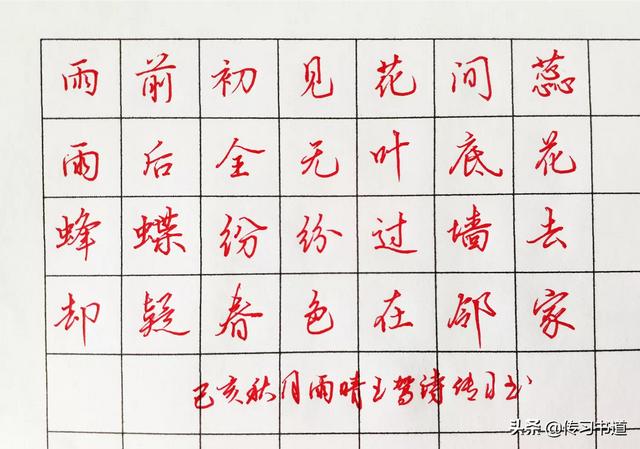 雨前初见花间蕊
雨后全无叶底花
蜂蝶纷纷过墙去
却疑春色在邻家
己亥秋月雨晴王驾诗传习书
头条 @传习书道